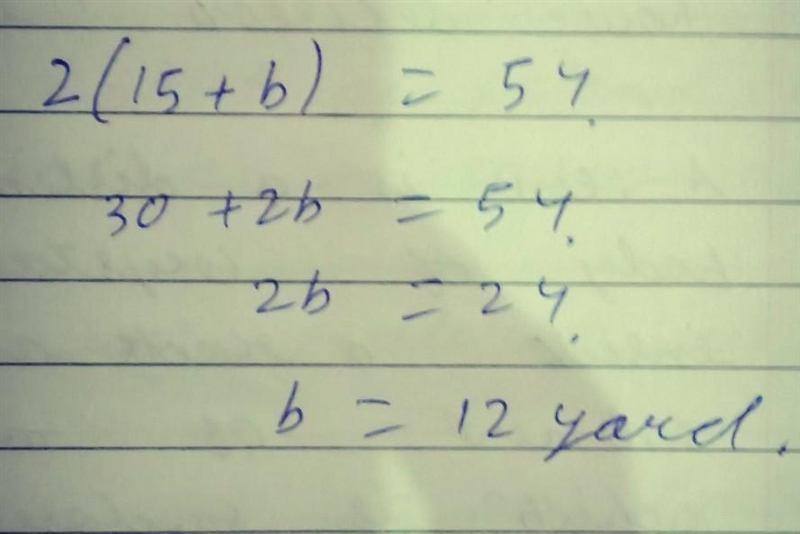 2(15 + b) = 54.
30 + 2b = 54.
2b = 24.
b = 12 yard.